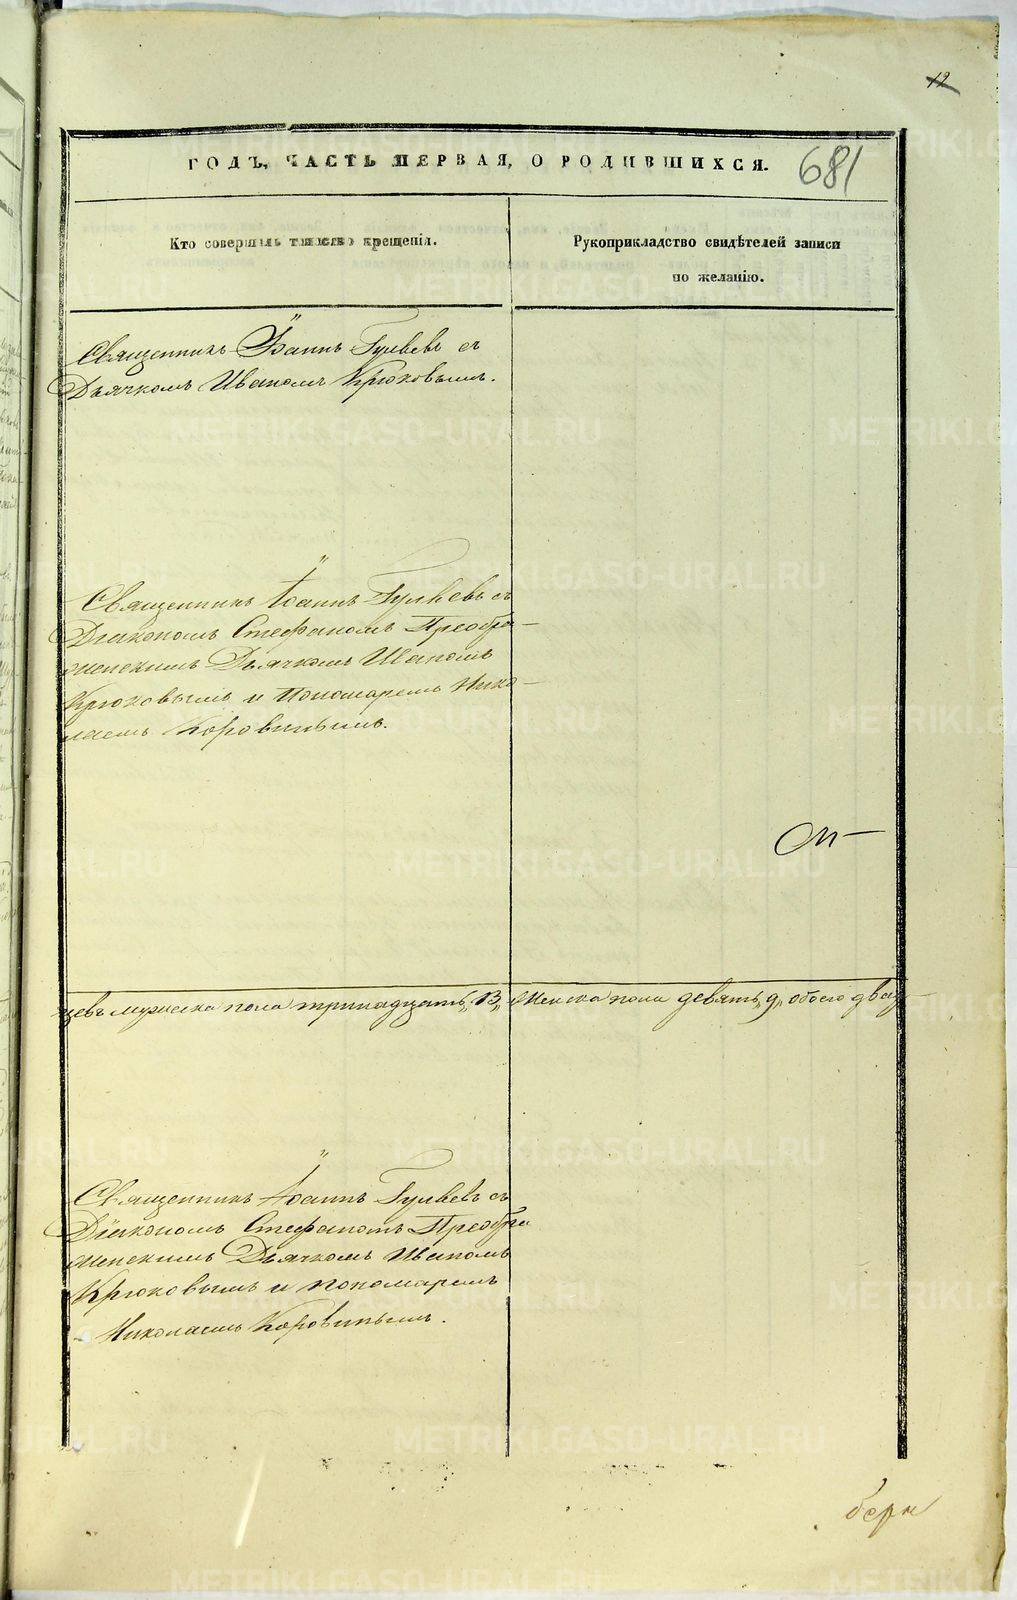 12
ГОДЪ, ЧАСТЬ ПЕРВАЯ, О РОДИВШИХСЯ.
681
Кто совершилъ таинство крещенія.
Рукоприкладство свидѣтелей записи
по желанію.
Священникъ Іоаннъ Гуляевъ съ
Дьячкомъ Иваномъ Крюковымъ.
Священникъ Іоаннъ Гуляевъ съ
Діакономъ Стефаномъ Преобра-
женскимъ Дьячкомъ Иваномъ
Крюковымъ и Пономаремъ Нико-
лаемъ Коровинымъ.
цевъ мужеска пола тринадцать „13„ женска пола девять „9„ обоего двад
Священникъ Іоаннъ Гуляевъ съ
Діакономъ Стефаномъ Преобра
женскимъ Дьячкомъ Иваномъ
Крюковымъ и пономаремъ
Николаемъ Коровинымъ.
METRIKI.GASO-URAL.RU